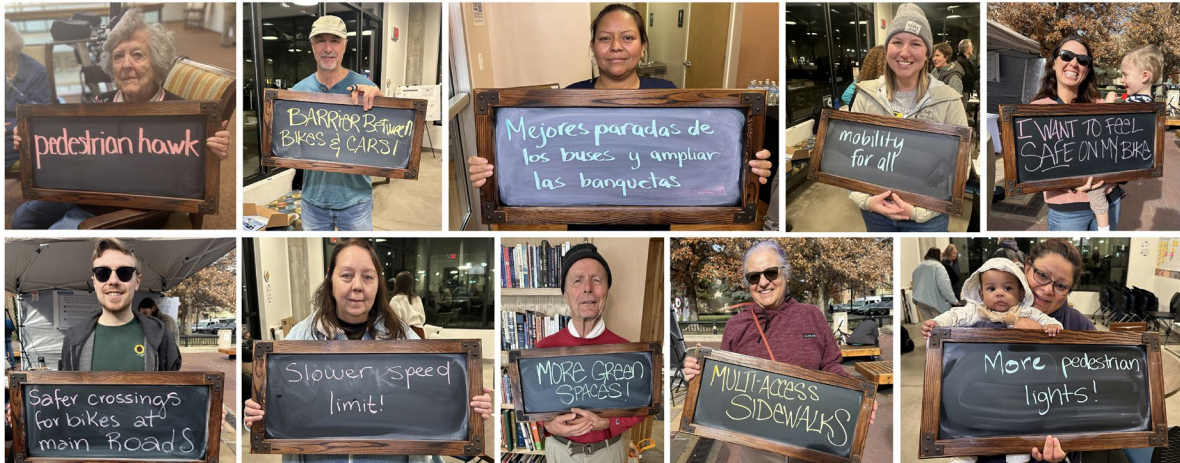 pedestrian hawk
BARRIER Between
BIKES & CARS!
Mejores paradas de
los buses y ampliar
las banquetas
mobility
for all
I WANT TO FEEL
SAFE ON MY BIKE
Safer crossings
for bikes at
main ROADS
Slower speed
limit!
MORE GREEN
SPACES!
MULTI-ACCESS
SIDEWALKS
More pedestrian
lights!